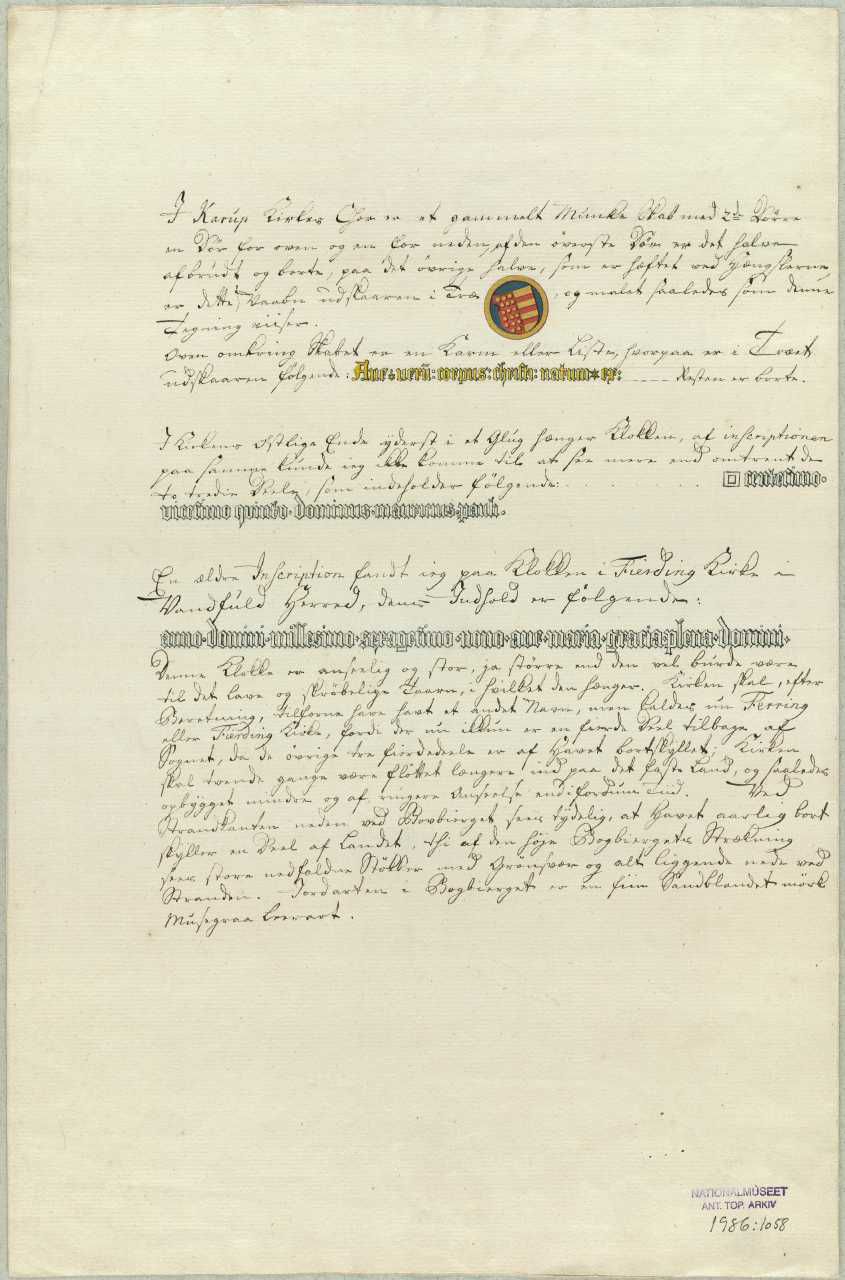 I Karup Kirkes Chor er et gammelt Munke Skab med 2de Dörre
en Dör for oven og en for neden, af den överste Dör er det halve
afbrudt og borte, paa det övrige halve, som er hæftet ved Hængslerne,
er dette Vaaben udskaaren i Træ , og malet saaledes som denne
Tegning viiser.
Oven omkring Skabet er en Karm eller Liste, hvorpaa er i Træet
udskaaren fölgende: Aue uerū: corpus: christi: natum ex: ---- Resten er borte.
I Kirkens Östlige Ende yderst i et Glug hænger Klokken, af inscriptionen
paa samme kunde ieg ikke komme til at see mere end omtrent de
to tredie Deele, som indeholder fölgende: . . . . . centesimo.
vicesimo quinto. dominus. mauricius. pauli.
En ældre Inscription fandt ieg paa Klokken i Fierding Kirke i
Vandfuld Herred, dens Indhold er fölgende:
anno. domini. millesimo. sexagesimo. nono. aue. maria. gracia. plena. domini.
Denne Klokke er anseelig og stor, ja större end den vel burde være
til det lave og skröbelige Taarn, i hvilket den hænger. Kirken skal, efter
Beretning, tilforne have havt et andet Navn, men kaldes nu Ferring
eller Fierding Kirke, fordi der nu ikkun er en fierde Deel tilbage af
Sognet, da de övrige tre fierdedeele er af Havet bortskyllet; Kirken
skal tvende gange være flöttet længere ind paa det faste Land, og saaledes
opbygget mindre og af ringere Anseelse end i fordum Tiid. Ved
Strandkanten neden ved Bovbierget sees tydelig, at Havet aarlig bort
skyller en Deel af Landet, thi af den höje Bogbiergets Strækning
sees store nedfaldne Stökker med Grönsvær og alt liggende nede ved
Stranden. Jordarten i Bogbierget er en fiin Sandblandet mörk
Musegraa Leerart.
NATIONALMUSEET
ANT. TOP. ARKIV
1986:1058